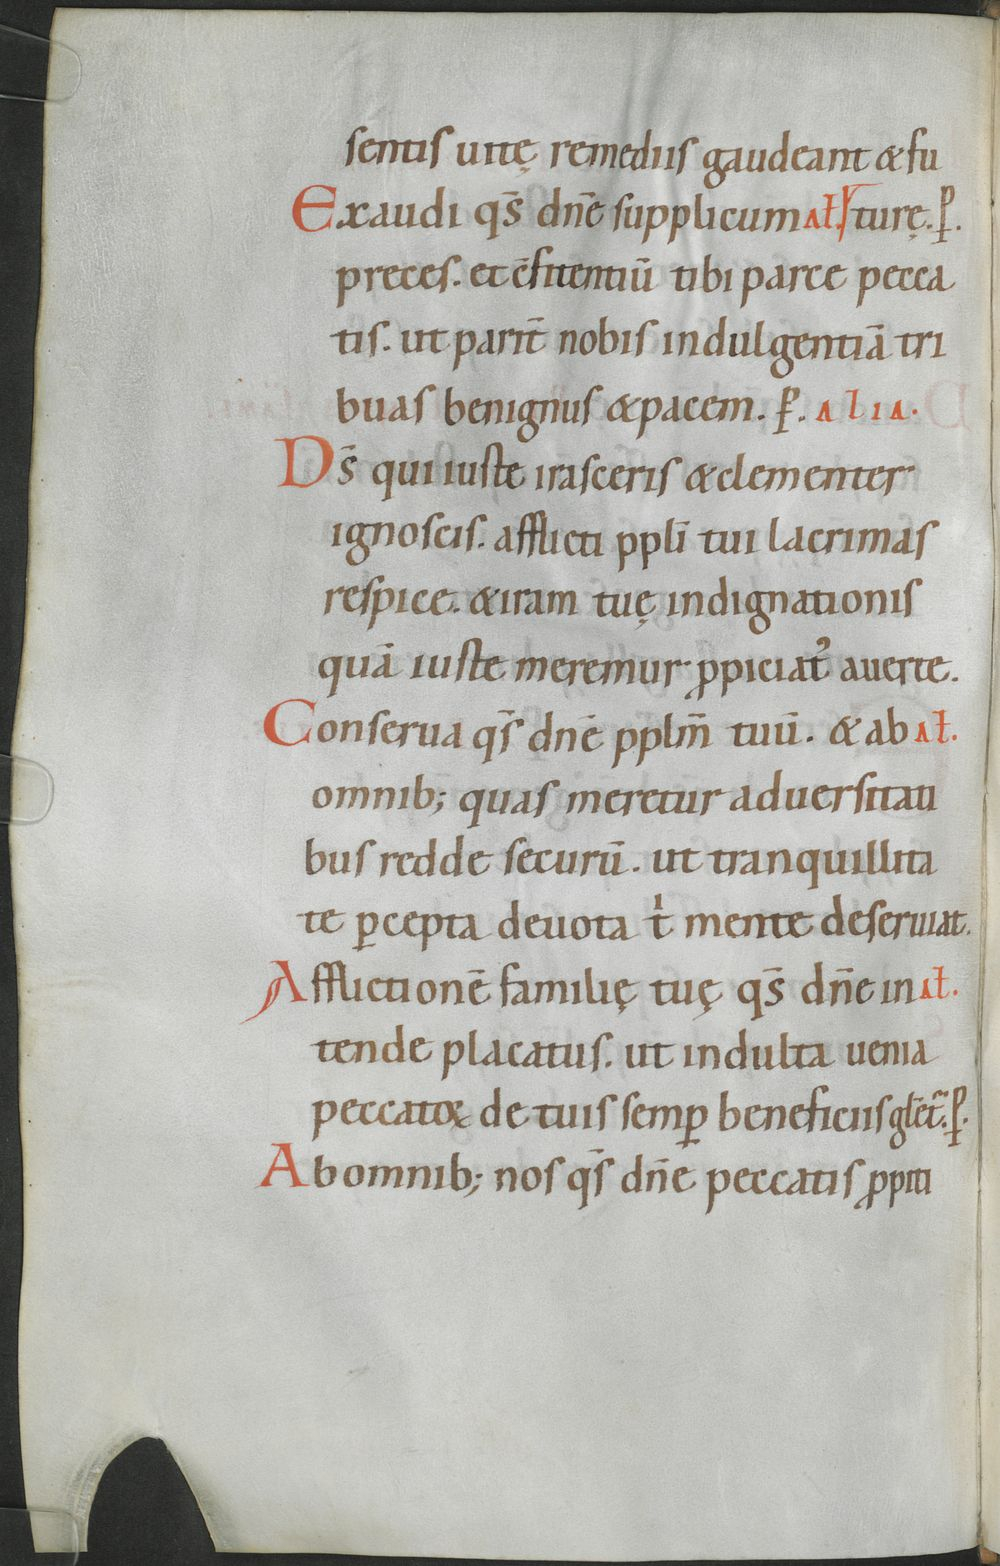 sentis uitę remediis gaudeant & fu
Exaudi qs̄ dn̄e supplicum al̄. turę. ꝑ.
preces. et c̄fitentiū tibi parce pecca
tis. ut parit̄ nobis indulgentiā tri
buas benignus & pacem. ꝑ. alia.
Ds̄ qui iuste irasceris & clementer
ignoscis. afflicti ppl̄i tui lacrimas
respice. & iram tuę indignationis
quā iuste meremur. ꝓpiciat᷒ auerte.
Conserua qs̄ dn̄e pplm̄ tuū. & ab al̄.
omnib; quas meretur aduersitati
bus redde securū. ut tranquillita
te ꝑcepta deuota tͥ mente deseruiat.
Afflictionē familię tuę qs̄ dn̄e in al̄.
tende placatus. ut indulta uenia
peccatoꝝ de tuis semꝑ beneficiis gl̄et᷒. ꝑ.
Ab omnib; nos qs̄ dn̄e peccatis ꝓpiti